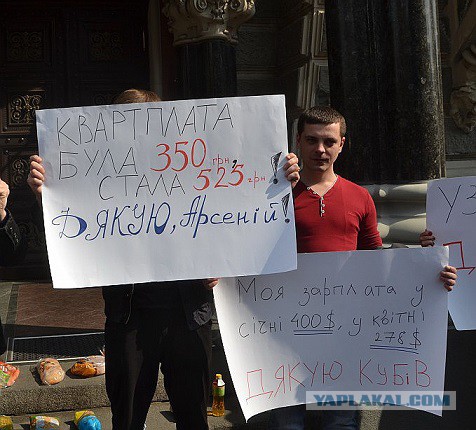 КВАРТПЛАТА
БУЛА 350 грн,
СТАЛА 525 грн!
ДЯКУЮ, Арсеній!
Моя зарплата у
січні 400$, у квітні
278$
ДЯКУЮ КУБІВ
У
Д
YAPLAKAL.COM